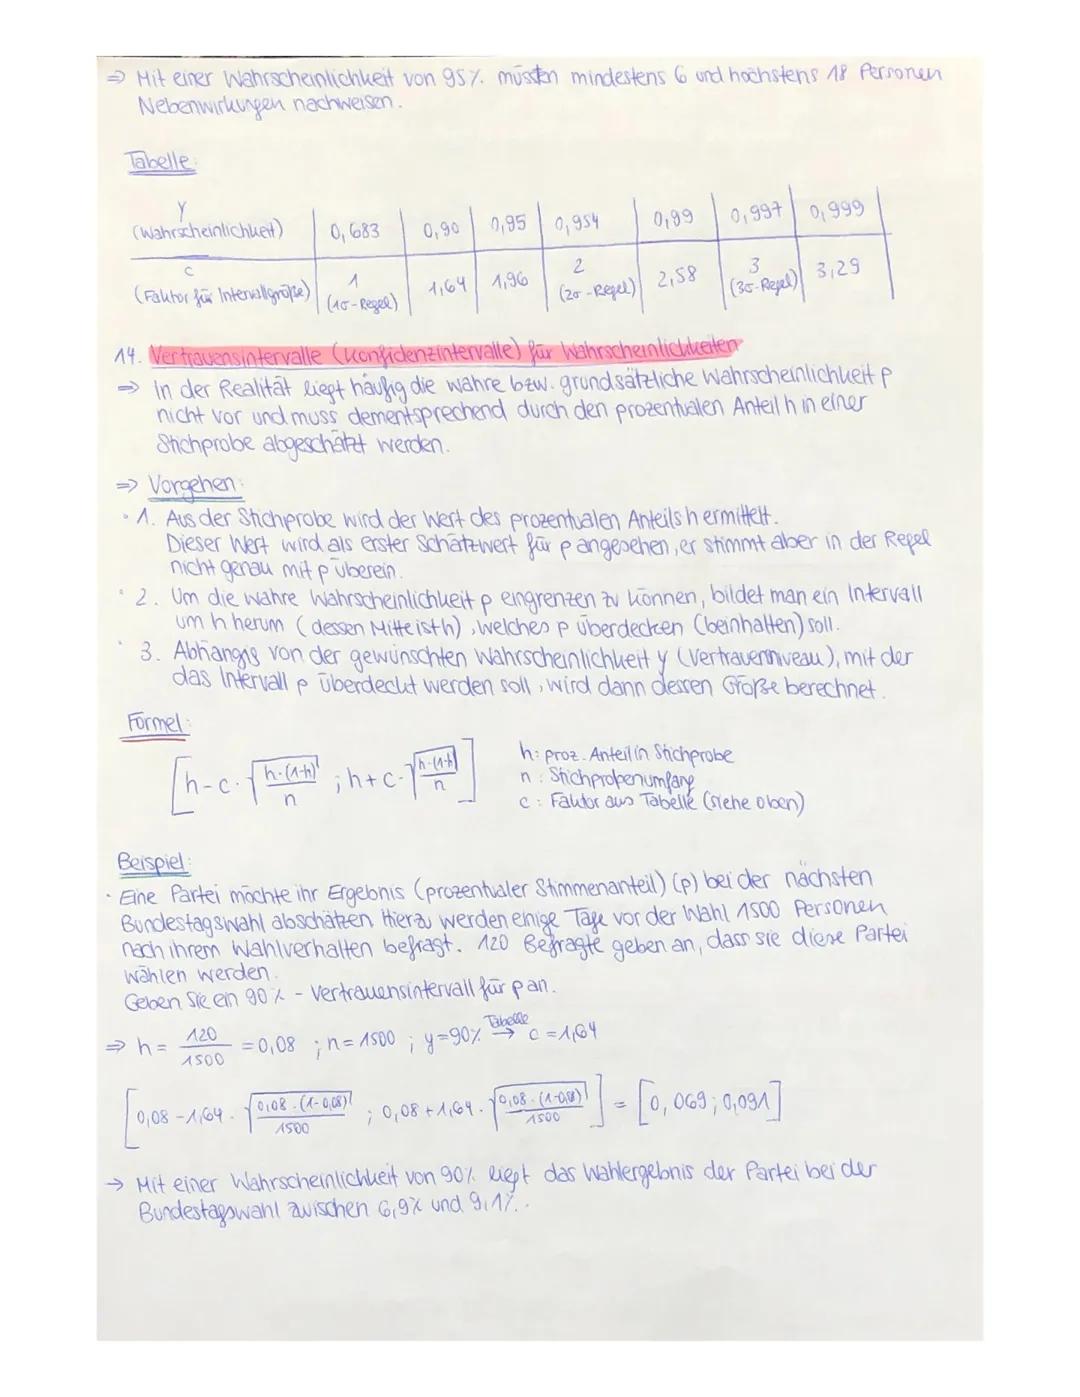 ⇒ Mit einer Wahrscheinlichkeit von 95%. müssten mindestens 6 und höchstens 18 Personen
Nebenwirkungen nachweisen.
Tabelle:
γ (Wahrscheinlichkeit) | 0,683 | 0,90 | 0,95 | 0,954 | 0,99 | 0,997 | 0,999
c (Faktor für Intervallgröße) | 1 (1σ-Regel) | 1,64 | 1,96 | 2 (2σ-Regel) | 2,58 | 3 (3σ-Regel) | 3,29
14. Vertrauensintervalle (Konfidenzintervalle) für Wahrscheinlichkeiten
⇒ In der Realität liegt häufig die wahre bzw. grundsätzliche Wahrscheinlichkeit p
nicht vor und muss dementsprechend durch den prozentualen Anteil h in einer
Stichprobe abgeschätzt werden.
⇒ Vorgehen:
• 1. Aus der Stichprobe wird der Wert des prozentualen Anteils h ermittelt.
Dieser Wert wird als erster Schätzwert für p angesehen, er stimmt aber in der Regel
nicht genau mit p überein.
• 2. Um die wahre Wahrscheinlichkeit p eingrenzen zu können, bildet man ein Intervall
um h herum (dessen Mitte ist h), welches p überdecken (beinhalten) soll.
• 3. Abhängig von der gewünschten Wahrscheinlichkeit γ (Vertrauenniveau), mit der
das Intervall p überdeckt werden soll, wird dann dessen Größe berechnet.
Formel:
[h-c·√(h·(1-h)/n) ; h+c·√(h·(1-h)/n)]
h: proz. Anteil in Stichprobe
n: Stichprobenumfang
c: Faktor aus Tabelle (siehe oben)
Beispiel:
• Eine Partei möchte ihr Ergebnis (prozentualer Stimmenanteil) (p) bei der nächsten
Bundestagswahl abschätzen. Hierzu werden einige Tage vor der Wahl 1500 Personen
nach ihrem Wahlverhalten befragt. 120 Befragte geben an, dass sie diese Partei
wählen werden.
Geben Sie ein 90% - Vertrauensintervall für p an.
⇒ h = 120/1500 = 0,08 ; n = 1500 ; γ = 90% Tabelle → c = 1,64
[0,08 - 1,64 · √(0,08·(1-0,08)/1500) ; 0,08 + 1,64 · √(0,08·(1-0,08)/1500)] = [0,069 ; 0,091]
→ Mit einer Wahrscheinlichkeit von 90% liegt das Wahlergebnis der Partei bei der
Bundestagswahl zwischen 6,9% und 9,1%.